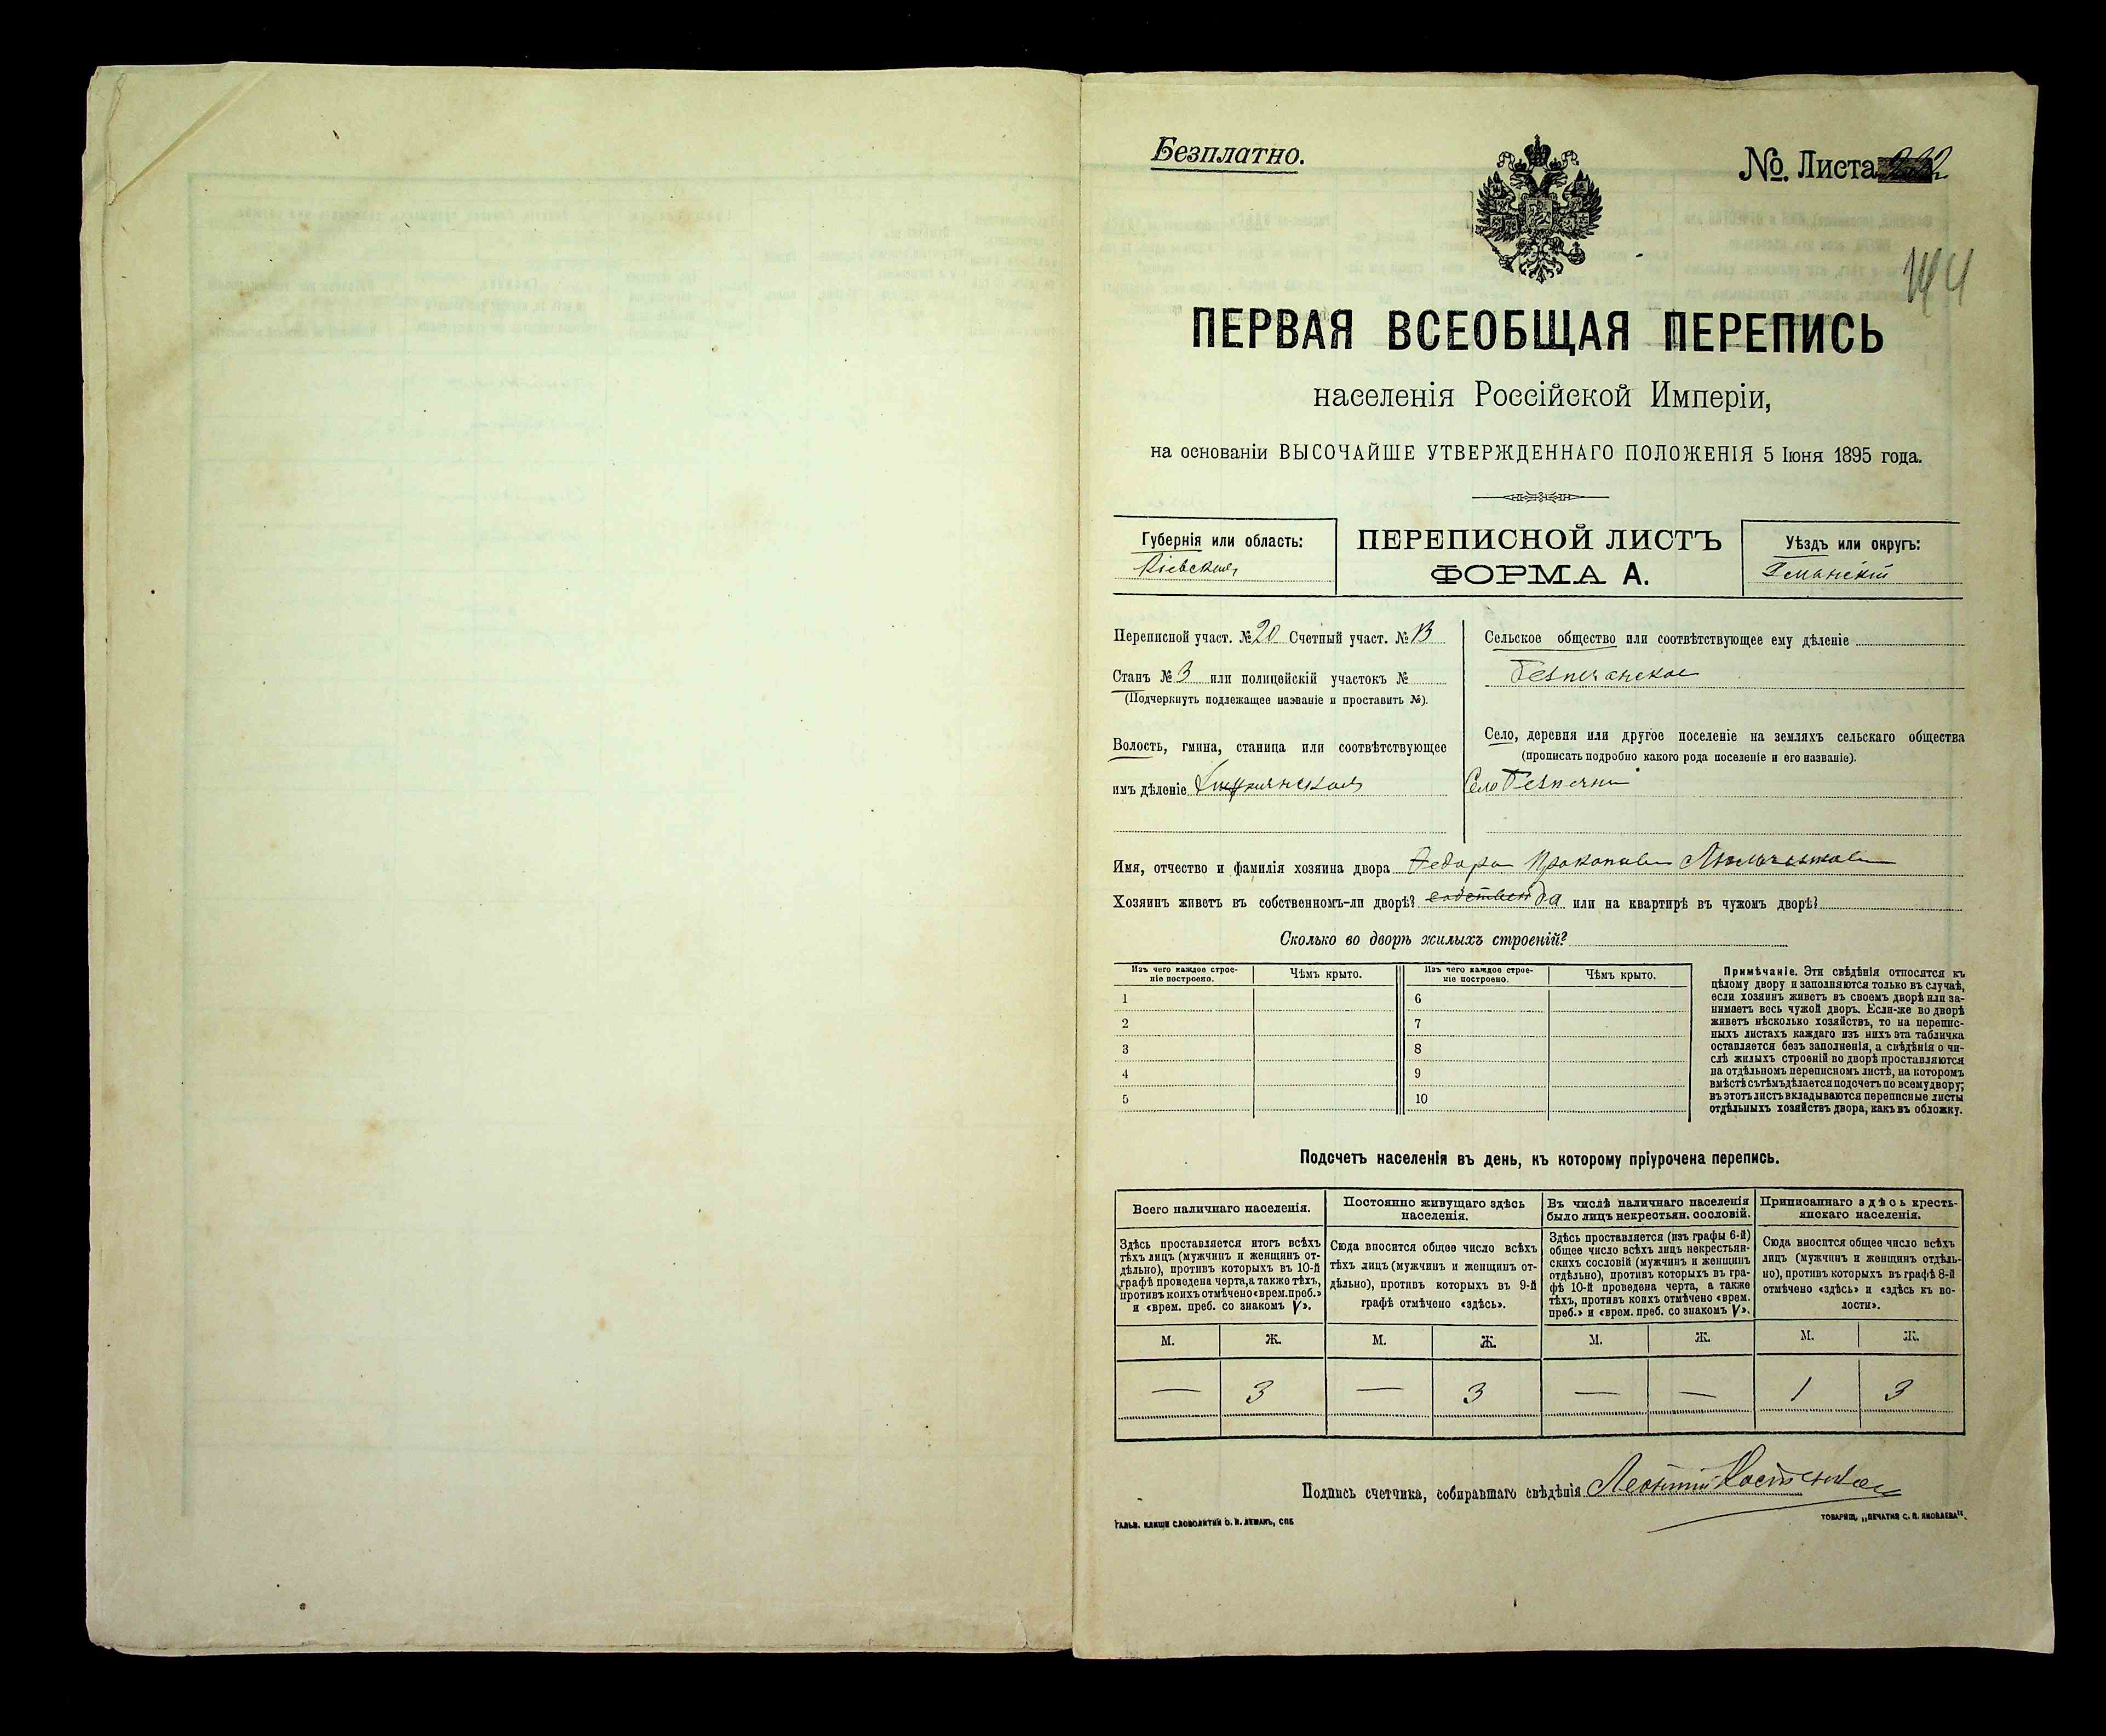 Безплатно.
№. Листа
144
ПЕРВАЯ ВСЕОБЩАЯ ПЕРЕПИСЬ
населенія Россійской Имперіи,
на основаніи ВЫСОЧАЙШЕ УТВЕРЖДЕННАГО ПОЛОЖЕНІЯ 5 Іюня 1895 года.
Губернія или область:
Кіевская
ПЕРЕПИСНОЙ ЛИСТЪ
ФОРМА А.
Уѣздъ или округъ:
Уманскій
Переписной участ. № 20 Счетный участ. № 13
Станъ № 3 или полицейскій участокъ №
(Подчеркнуть подлежащее названіе и проставить №).
Волость, гмина, станица или соотвѣтствующее
имъ дѣленіе
Сельское общество или соотвѣтствующее ему дѣленіе
Село, деревня или другое поселеніе на земляхъ сельскаго общества
(прописать подробно какого рода поселеніе и его названіе).
Село
Имя, отчество и фамилія хозяина двора Федора
Хозяинъ живетъ въ собственномъ-ли дворѣ? да или на квартирѣ въ чужомъ дворѣ?
Сколько во дворѣ жилыхъ строеній?
Изъ чего каждое строе-
ніе построено.
Чѣмъ крыто.
Изъ чего каждое строе-
ніе построено.
Чѣмъ крыто.
1 6
2 7
3 8
4 9
5 10
Примѣчаніе. Эти свѣдѣнія относятся къ
цѣлому двору и заполняются только въ случаѣ,
если хозяинъ живетъ въ своемъ дворѣ или за-
нимаетъ весь чужой дворъ. Если-же во дворѣ
живетъ нѣсколько хозяйствъ, то на перепис-
ныхъ листахъ каждаго изъ нихъ эта табличка
оставляется безъ заполненія, а свѣдѣнія о чи-
слѣ жилыхъ строеній во дворѣ проставляются
на отдѣльномъ переписномъ листѣ, на которомъ
вмѣстѣ съ тѣмъ дѣлается подсчетъ по всему двору;
въ этотъ листъ вкладываются переписные листы
отдѣльныхъ хозяйствъ двора, какъ въ обложку.
Подсчетъ населенія въ день, къ которому пріурочена перепись.
Всего наличнаго населенія.
Здѣсь проставляется итогъ всѣхъ
тѣхъ лицъ (мужчинъ и женщинъ от-
дѣльно), противъ которыхъ въ 10-й
графѣ проведена черта, а также тѣхъ,
противъ коихъ отмѣчено «врем. преб.»
и «врем. преб. со знакомъ V».
Постоянно живущаго здѣсь
населенія.
Сюда вносится общее число всѣхъ
тѣхъ лицъ (мужчинъ и женщинъ от-
дѣльно), противъ которыхъ въ 9-й
графѣ отмѣчено «здѣсь».
Въ числѣ наличнаго населенія
было лицъ некрестьян. сословій.
Здѣсь проставляется (изъ графы 6-й)
общее число всѣхъ лицъ некрестьян-
скихъ сословій (мужчинъ и женщинъ
отдѣльно), противъ которыхъ въ гра-
фѣ 10-й проведена черта, а также
тѣхъ, противъ коихъ отмѣчено «врем.
преб.» и «врем. преб. со знакомъ V».
Приписаннаго здѣсь кресть-
янскаго населенія.
Сюда вносится общее число всѣхъ
лицъ (мужчинъ и женщинъ отдѣль-
но), противъ которыхъ въ графѣ 8-й
отмѣчено «здѣсь» и «здѣсь къ во-
лости».
М. Ж. М. Ж. М. Ж. М. Ж.
— 3 — 3 — — 1 3
Подпись счетчика, собиравшаго свѣдѣнія Леонтій Костенко
ГАЛЬВ. КЛИШЕ СЛОВОЛИТНИ О. И. ЛЕМАНЪ, СПБ
ТОВАРИЩ. „ПЕЧАТНЯ С. П. ЯКОВЛЕВА".